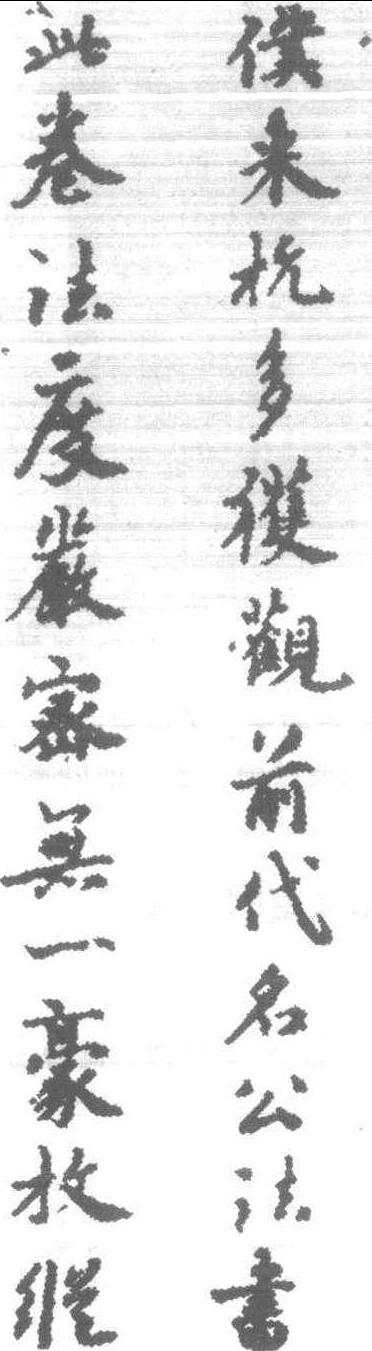 僕来杭多獲觀前代名公法書
此卷法度嚴密無一豪放縱